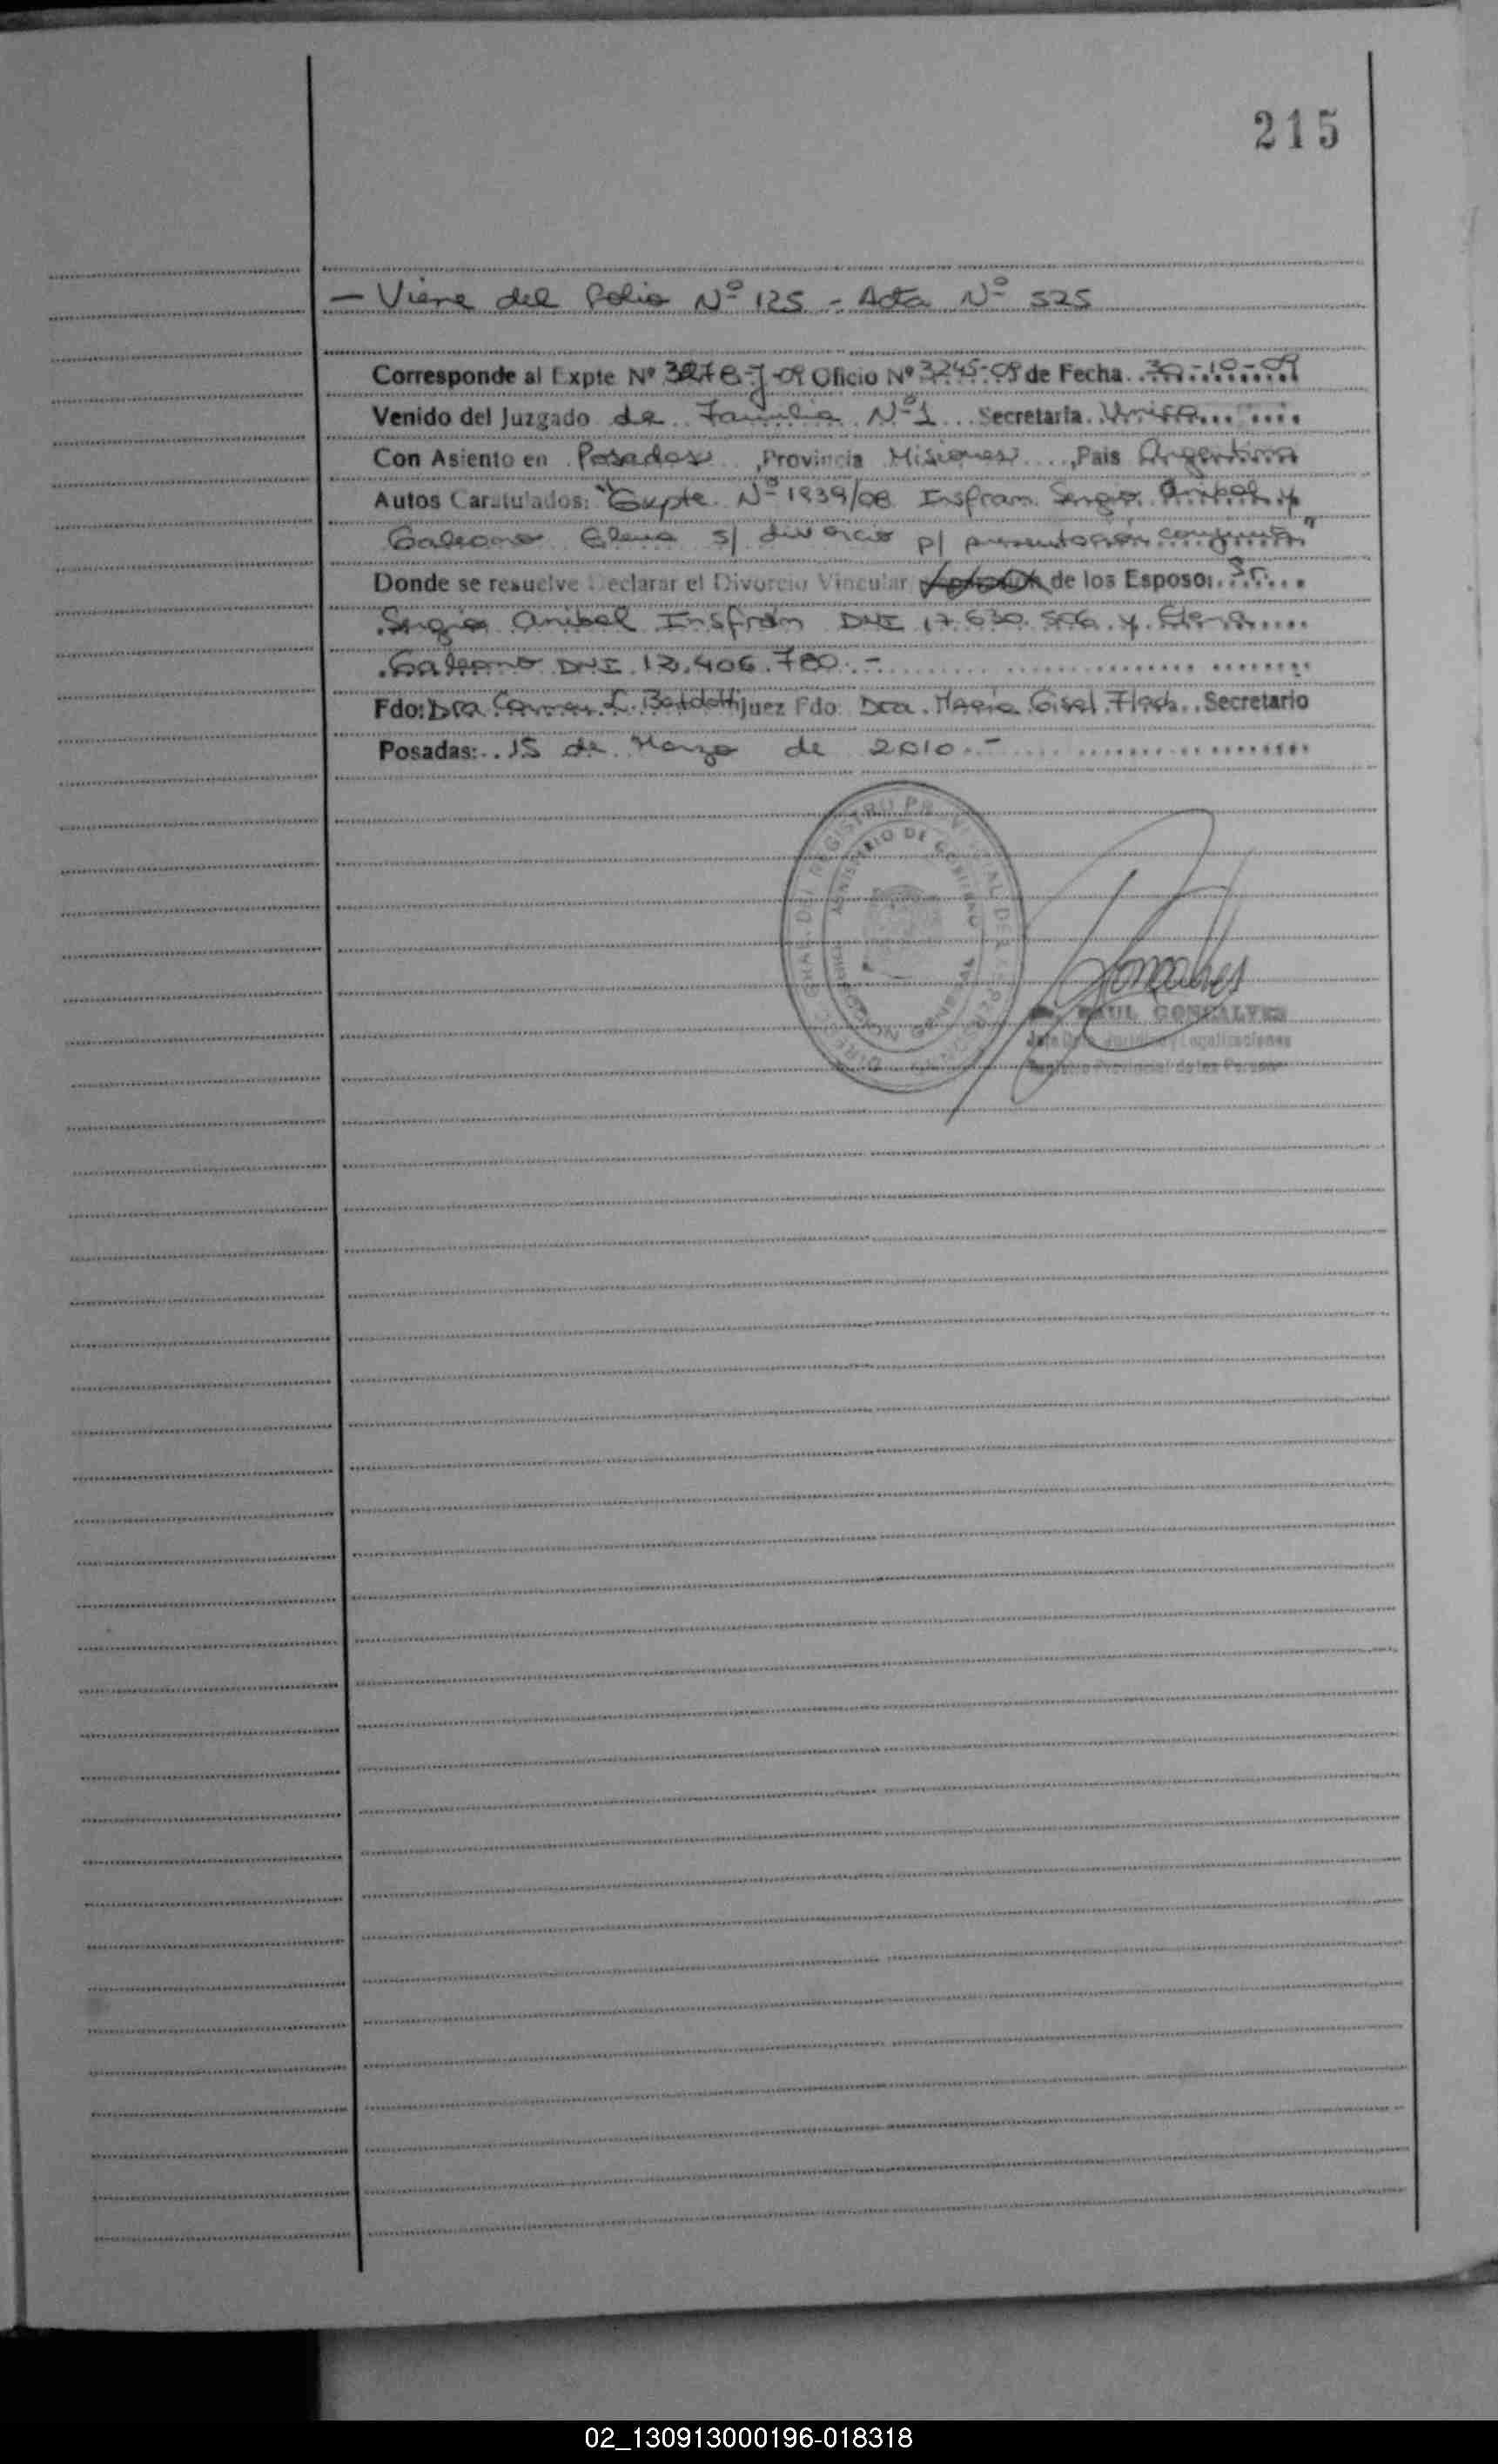 215
- Viene del Folio Nº 125 - Acta Nº 525
Corresponde al Expte Nº 3278-J-09 Oficio Nº 3245-09 de Fecha 30-10-09
Venido del Juzgado de Familia Nº 1 Secretaria. Unica
Con Asiento en Posadas, Provincia Misiones, Pais Argentina
Autos Caratulados: "Expte. Nº 1939/08 Insfran Sergio Anibal y
Galeano Elena s/ divorcio p/ presentación conjunta"
Donde se resuelve Declarar el Divorcio Vincular de los Esposos: Sr.
Sergio Anibal Insfrán DNI 17.630.506 y Elena
Galeano DNI 12.406.780.-
Fdo: Dra Carmen L. Juez Fdo: Dra. María Gisel Flach. Secretario
Posadas: 15 de Marzo de 2010.-
DIREC. GRAL. DEL REGISTRO PROVINCIAL DE LAS PERSONAS
MINISTERIO DE GOBIERNO
RAUL GONCALVES
Jefe Dpto. Jurídico y Legalizaciones
Registro Provincial de las Personas
02_130913000196-018318